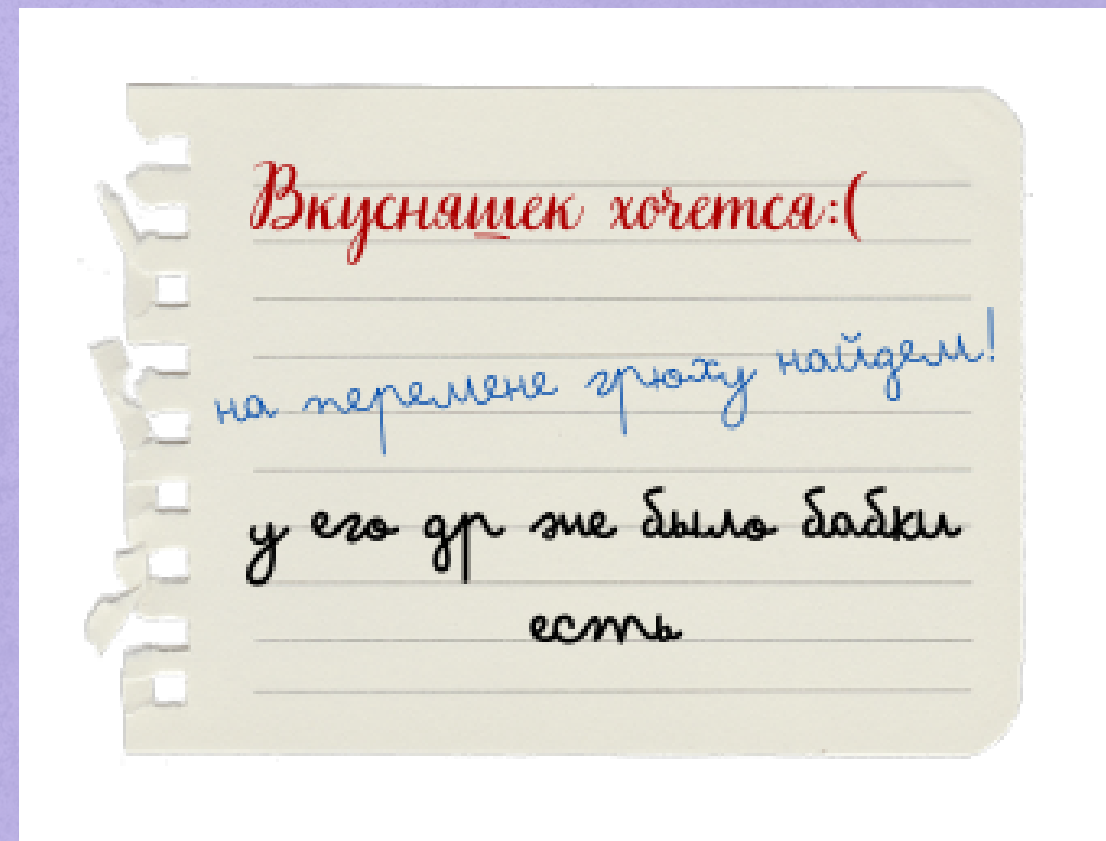 Вкусняшек хочется:(
на перемене грюху найдем!
у его др же было бабки
есть